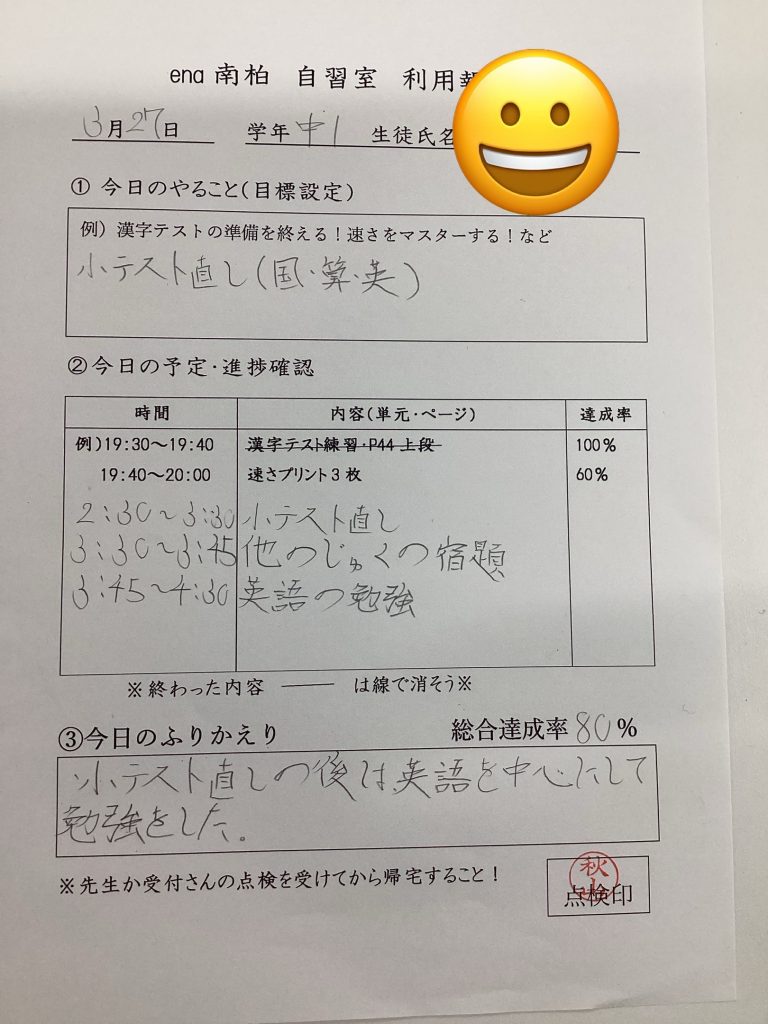 ena 南柏 自習室 利用報
3月27日 学年 中1 生徒氏名
① 今日のやること(目標設定)
例) 漢字テストの準備を終える！速さをマスターする！など
小テスト直し(国・算・英)
②今日の予定・進捗確認
時間 内容(単元・ページ) 達成率
例)19:30～19:40 漢字テスト練習・P44 上段 100%
19:40～20:00 速さプリント3枚 60%
2:30～3:30 小テスト直し
3:30～3:45 他のじゅくの宿題
3:45～4:30 英語の勉強
※終わった内容 ―― は線で消そう※
③今日のふりかえり 総合達成率 80%
小テスト直しの後は、英語を中心にして
勉強をした。
※先生か受付さんの点検を受けてから帰宅すること！
秋山
点検印